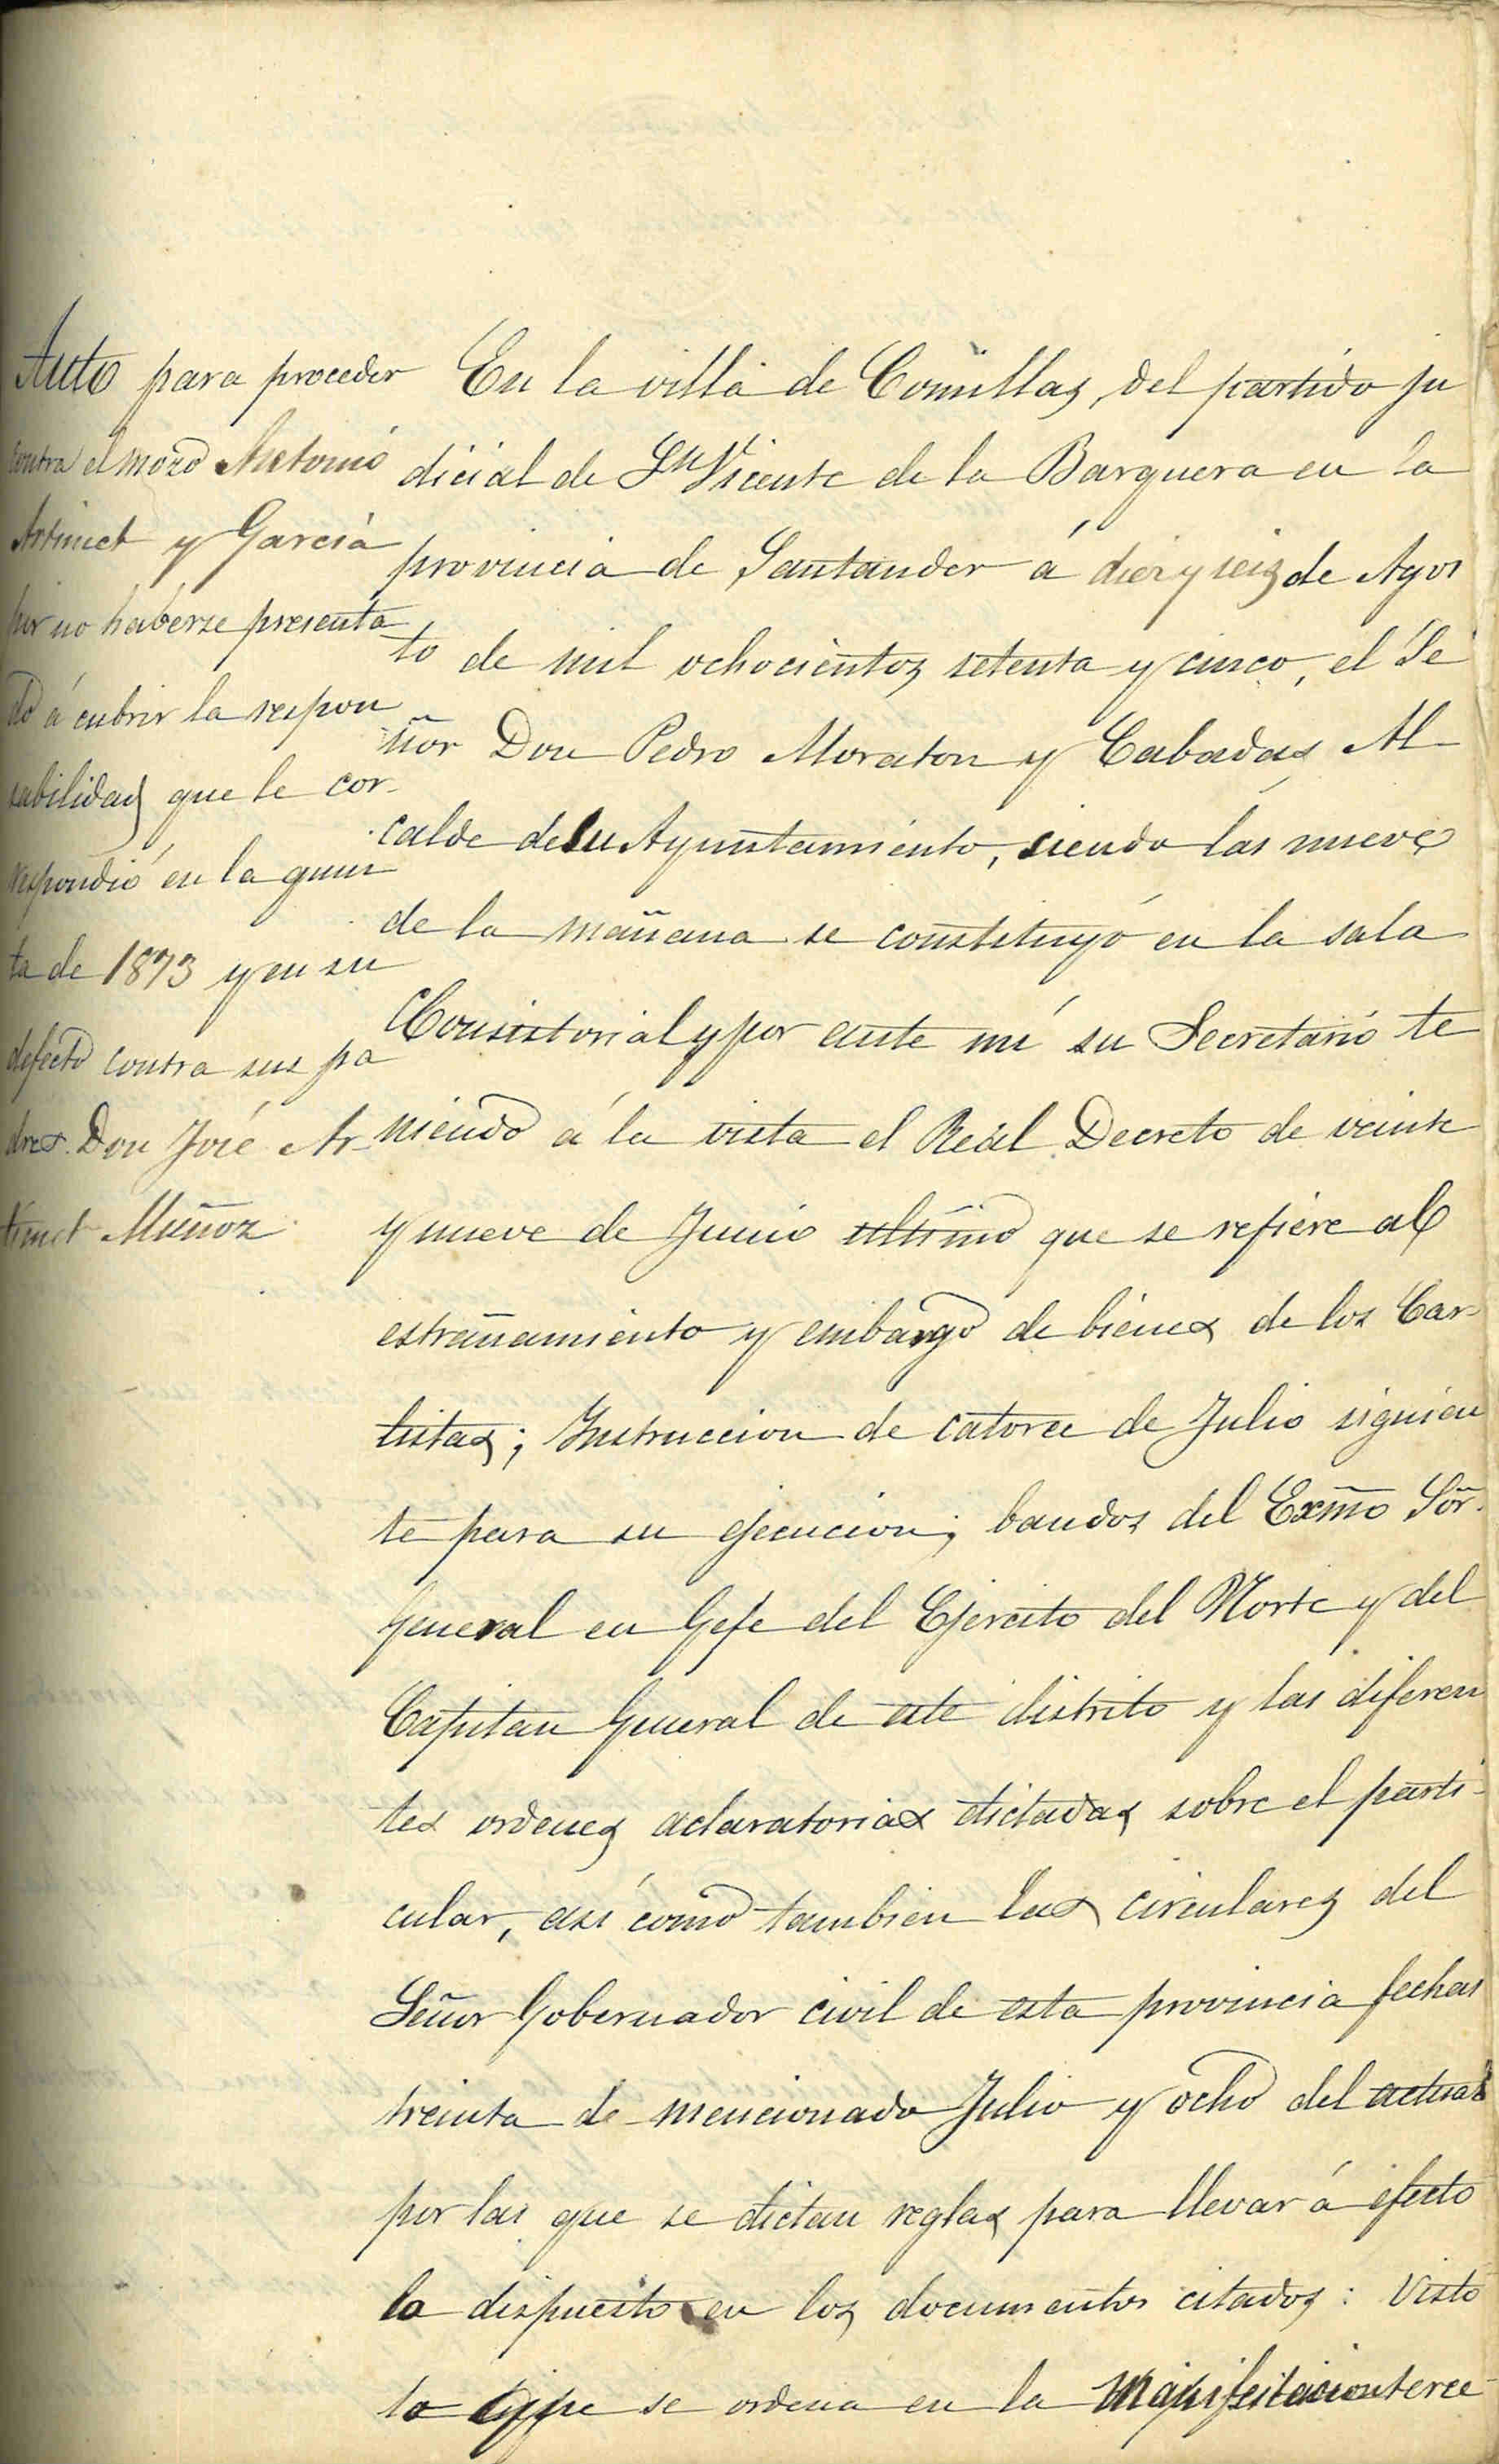 Auto para proceder
contra el mozo Antonio
Artimet y García
por no haberse presenta
do á cubrir la respon
sabilidad que le cor-
respondió en la quin
ta de 1873 y en su
defecto contra sus pa
dres Don José Ar-
timet Muñoz.
En la villa de Comillas, del partido ju
dicial de Sn Vicente de la Barquera en la
provincia de Santander á diez y seis de Agos
to de mil ochocientos setenta y cinco, el Se
ñor Don Pedro Moraton y Cabadas Al-
calde de su Ayuntamiento, siendo las nueve
de la mañana se constituyó en la sala
Consistorial y por ante mí su Secretario te
niendo á la vista el Real Decreto de veinte
y nueve de Junio ultimo que se refiere al
estrañamiento y embargo de bienes de los Car-
listas; Instruccion de catorce de Julio siguien
te para su ejecucion; bandos del Exmo Sor.
General en Gefe del Ejercito del Norte y del
Capitan General de este distrito y las diferen
tes ordenes aclaratorias dictadas sobre el parti-
cular, así como tambien las circulares del
Señor Gobernador civil de esta provincia fechas
treinta de mencionado Julio y ocho del actual
por las que se dictan reglas para llevar á efecto
lo dispuesto en los documentos citados: Visto
lo que se ordena en la manifestacion terce